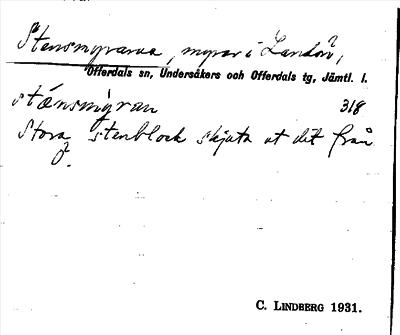 Stensmyrarna, myrar i Landön,
Offerdals sn, Undersåkers och Offerdals tg, Jämtl. l.
stænsmýran 318
Stora stenblock skjuta ut dit från
ö.
C. LINDBERG 1931.